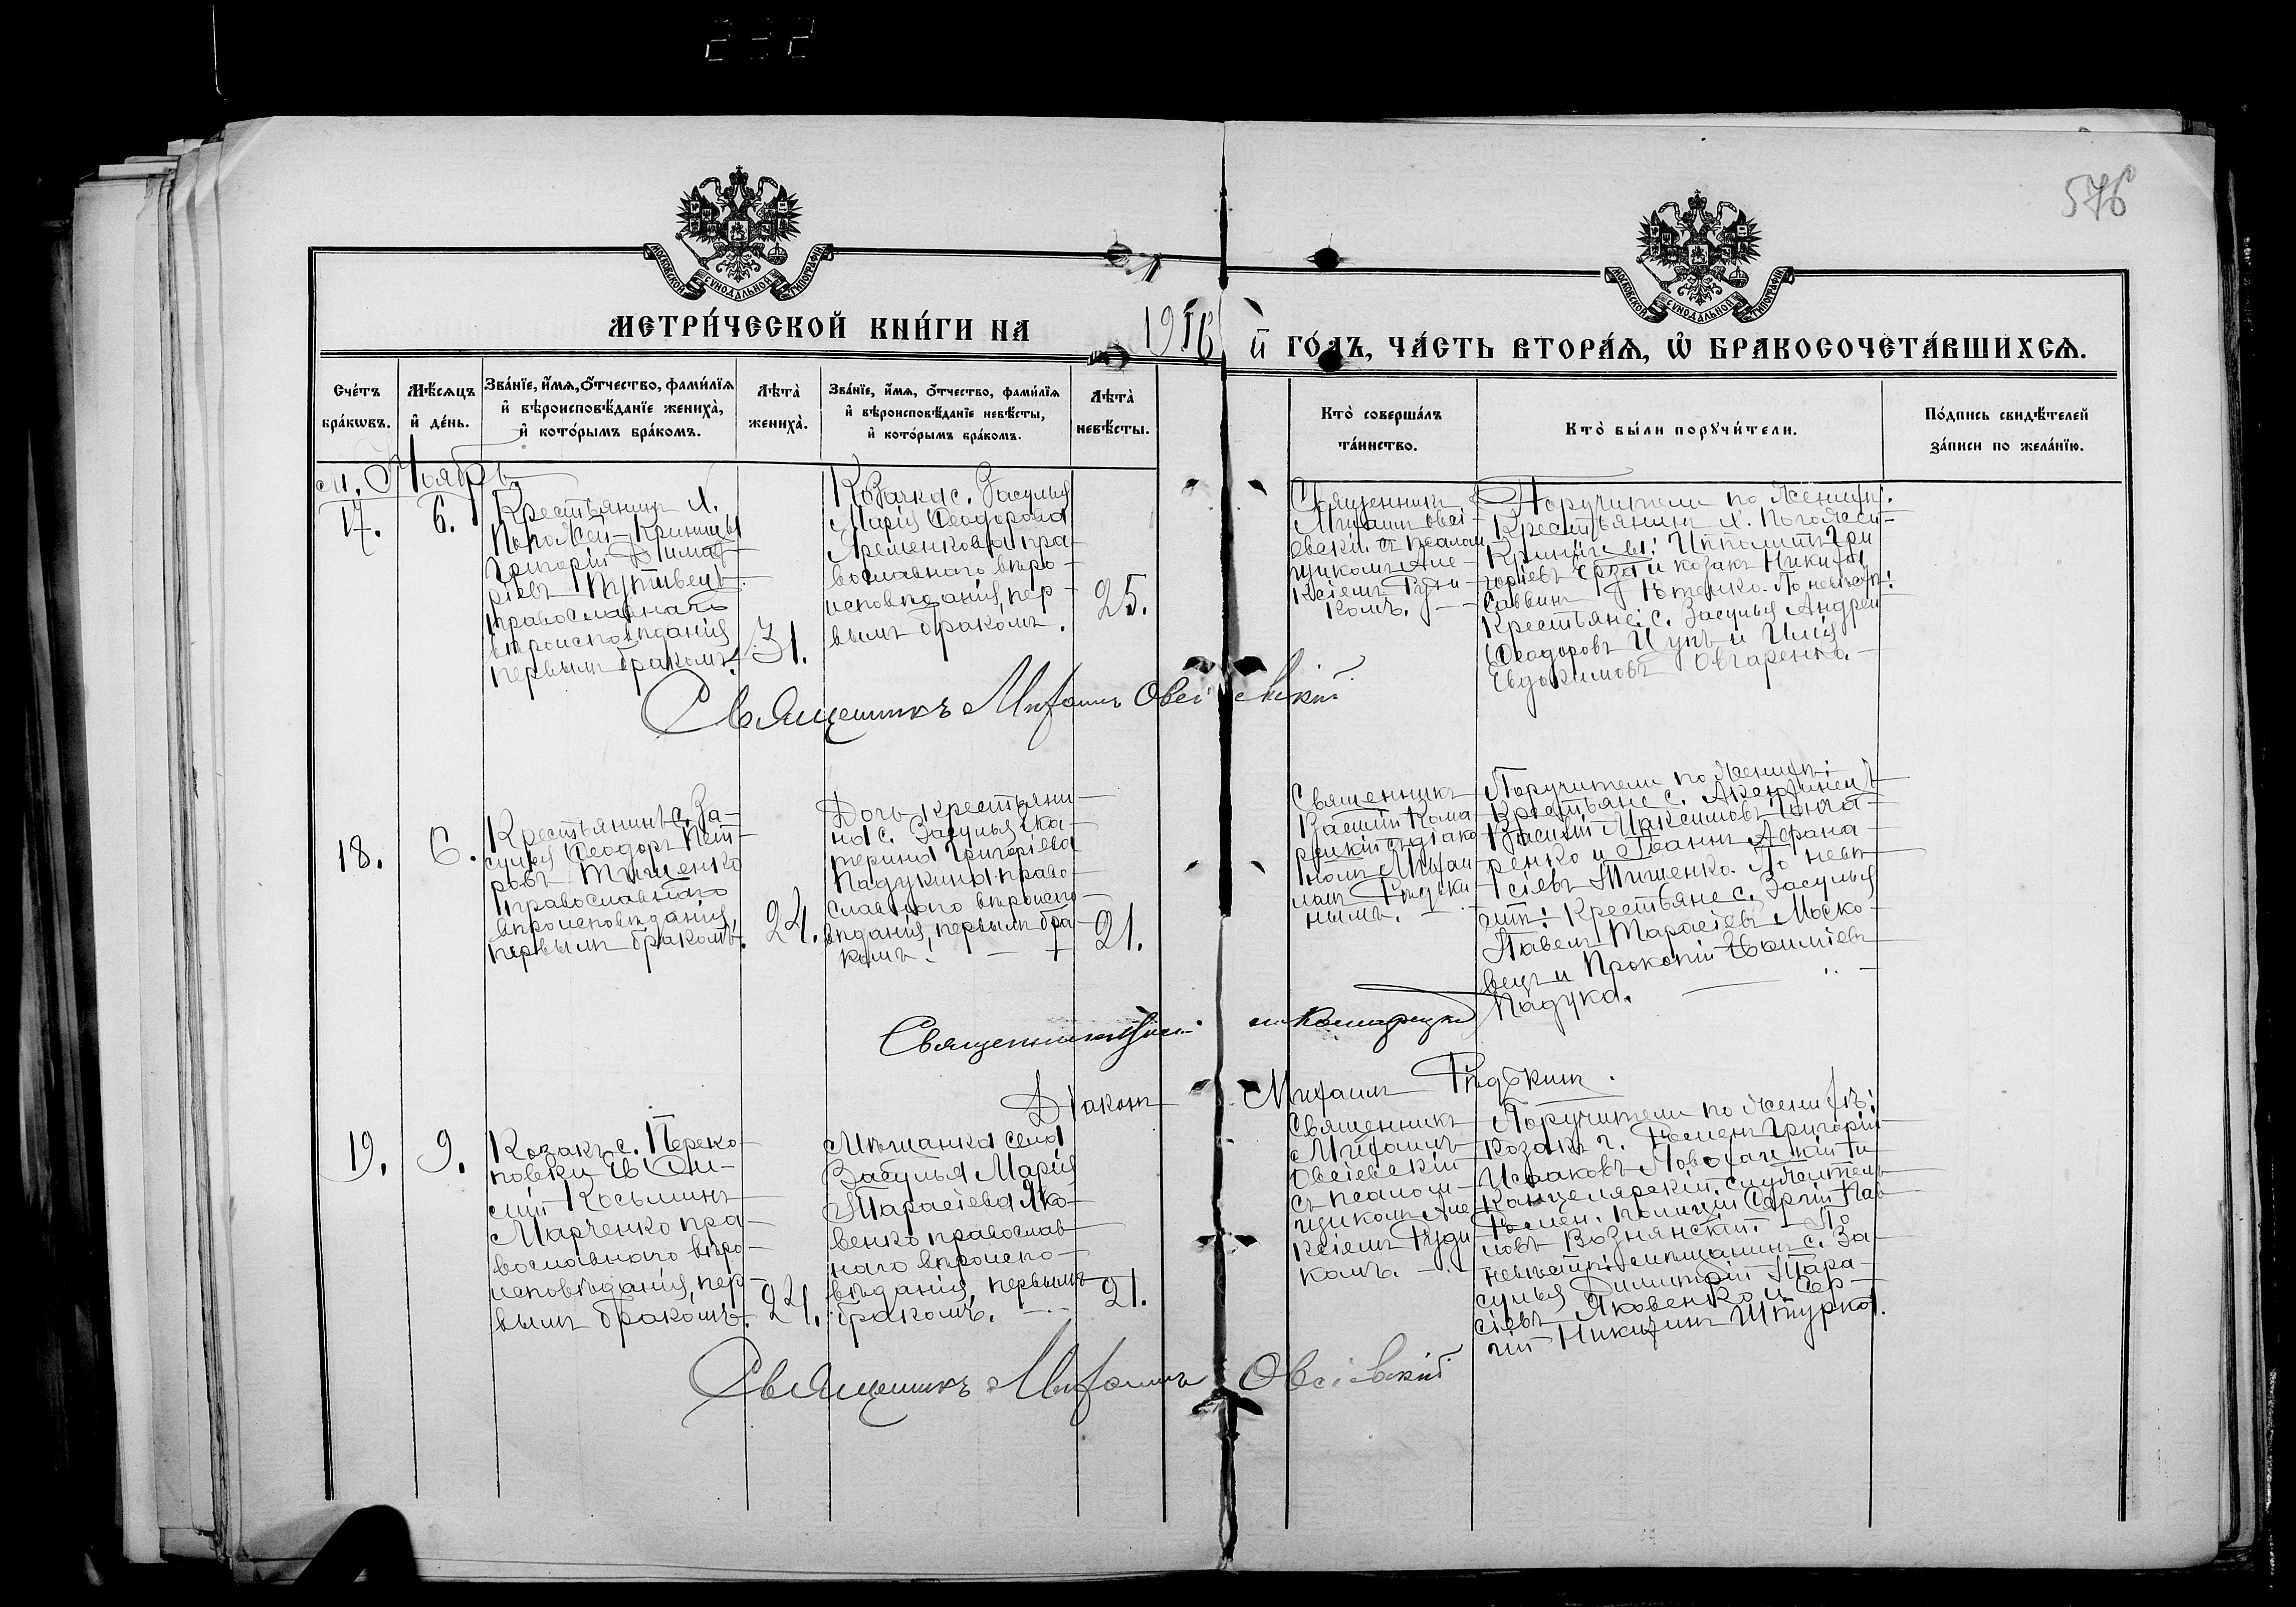 232
576
МОСКОВСКОЙ СѴНОДАЛЬНОЙ ТИПОГРАФІИ
МОСКОВСКОЙ СѴНОДАЛЬНОЙ ТИПОГРАФІИ
МЕТРИ́ЧЕСКОЙ КНИ́ГИ НА 1916 й ГО́ДЪ, ЧА́СТЬ ВТОРА́Ѧ, Ѽ БРАКОСОЧЕТА́ВШИХСѦ.
Сче́тъ бра́кѡвъ.
Мѣ́сѧцъ и҆ де́нь.
Зва́нїе, и҆́мѧ, ѻ҆́тчество, фами́лїѧ
и҆ вѣроисповѣ́данїе жениха̀,
и҆ кото́рымъ бра́комъ.
Лѣта̀ жениха̀.
Зва́нїе, и҆́мѧ, ѻ҆́тчество, фами́лїѧ
и҆ вѣроисповѣ́данїе невѣ́сты,
и҆ кото́рымъ бра́комъ.
Лѣта̀ невѣ́сты.
Кто̀ соверша́лъ та́инство.
Кто̀ бы́ли порꙋчи́тели.
По́дпись свидѣ́телей за́писи по жела́нїю.
м. Ноябрь
17.
6.
Крестьянинъ х.
Погожей-Криницы
Григорій Димит-
ріевъ Путивецъ
православнаго
вѣроисповѣданія
первымъ бракомъ.
31.
Козачка с. Засулья
Марія Ѳеодорова
Ярешенкова пра-
вославнаго вѣро-
исповѣданія, пер-
вымъ бракомъ.
25.
Священникъ
Михаилъ Овсі-
евскій съ псалом
щикомъ Але-
ксіемъ Руди-
комъ.
Поручители по женихѣ:
Крестьянинъ х. Погожей-
Криницы: Ипполитъ Гри
горіевъ и козакъ Никита
Саввинъ По невѣстѣ:
Крестьяне: с. Засулья Андрей
Ѳеодоровъ Цупъ и Илія
Евдокимовъ Овчаренко.
Священникъ Михаилъ Овсіевскій
18.
6.
Крестьянинъ с. За-
сулья Ѳеодоръ Пет-
ровъ Тищенко
православнаго
вѣроисповѣданія,
первымъ бракомъ.
24.
Дочь крестьяни-
на с. Засулья Ека-
терина Григоріева
Падукина право-
славнаго вѣроиспо-
вѣданія, первымъ бра-
комъ.
21.
Священникъ
Василій Кома
рецкій съ діако
номъ Михаи
ломъ Рѣдьки
нымъ.
Поручители по женихѣ:
Крестьяне с.
Василій Максимовъ Гонча-
ренко и Іоаннъ Афана-
сіевъ Тищенко. По невѣ
стѣ: Крестьяне с. Засулья
Павелъ Тарасіевъ Моско-
вецъ и Прокопій
Падука.
Священникъ Василій Комарецкій
Діаконъ Михаилъ Рѣдькинъ.
19.
9.
Козакъ с. Переко-
повки
Косьминъ
Марченко пра-
вославнаго вѣро-
исповѣданія, пер-
вымъ бракомъ.
24.
Мѣщанка села
Засулья Марія
Тарасіева Яко-
венко православ-
наго вѣроиспо-
вѣданія, первымъ
бракомъ.
21.
Священникъ
Михаилъ
Овсіевскій
съ псалом-
щикомъ Але
ксіемъ Руди
комъ.
Поручители по женихѣ:
Козакъ г. Роменъ Григорій
Исааковъ и
Канцелярскій служитель
Ромен. полиціи Сергій Пав
ловъ Вознянскій. По
невѣстѣ: мѣщанинъ с. За-
сулья Димитрій Тара-
сіевъ Яковенко и Сер-
гій Никитинъ Штурко.
Священникъ Михаилъ Овсіевскій